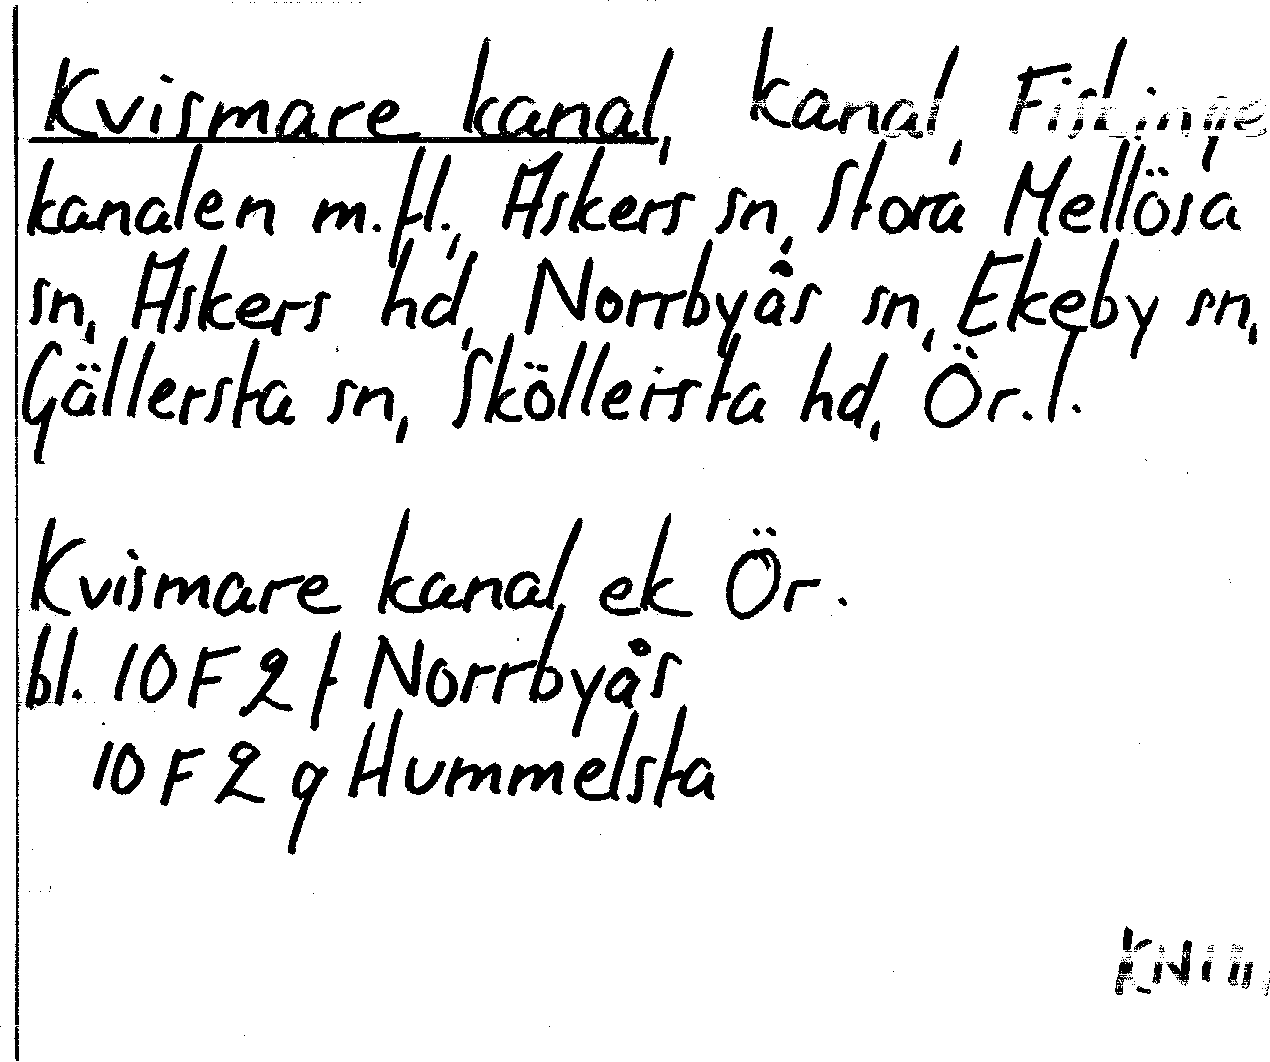 Kvismare kanal, kanal, Fiskinge
kanalen m.fl., Askers sn, Stora Mellösa
sn, Askers hd, Norrbyås sn, Ekeby sn,
Gällersta sn, Sköllersta hd, Ör.l.
Kvismare kanal ek Ör.
bl. 10F2f Norrbyås
10F2g Hummelsta